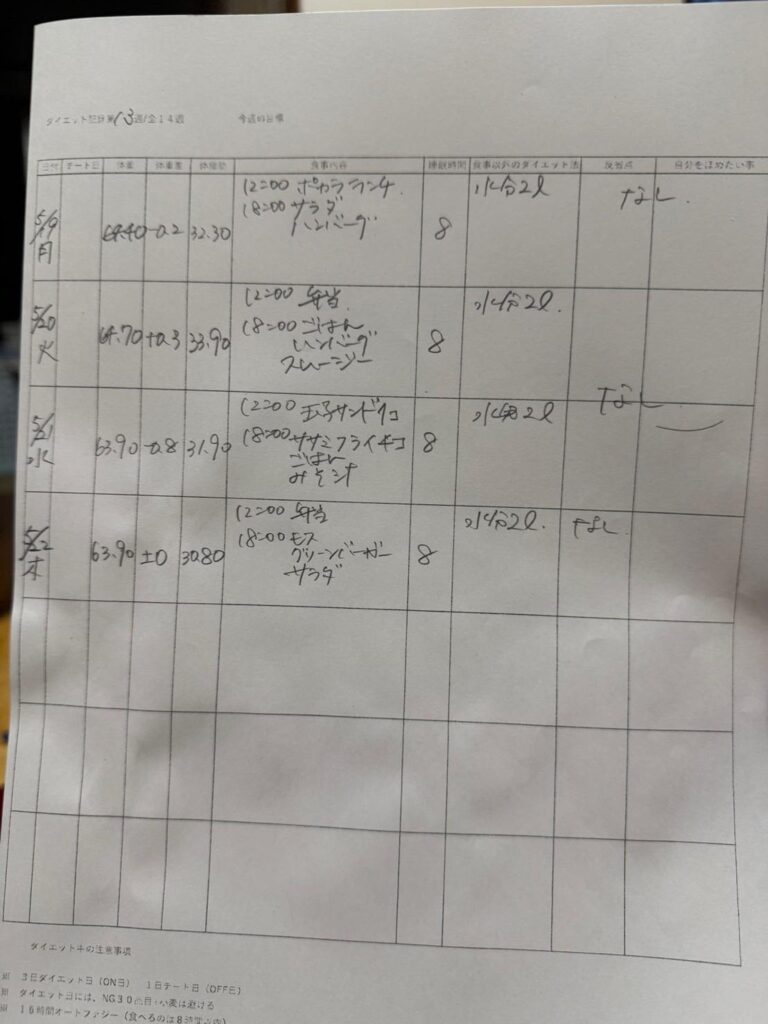 ダイエット記録第13週/全14週 今週の目標
日付 チート日 体重 体重差 体脂肪 食事内容 睡眠時間 食事以外のダイエット法 反省点 自分をほめたい事
5/19 月 64.40 -0.2 32.30 8 水分2ℓ なし.
12:00 ポカラランチ.
18:00 サラダ
ハンバーグ
5/20 火 64.70 +0.3 33.90 8 水分2ℓ.
12:00 弁当.
18:00 ごはん
ハンバーグ
スムージー
5/21 水 63.90 -0.8 31.90 8 水分2ℓ なし
12:00 玉子サンド1コ
18:00 ササミフライ1コ
ごはん
みそ汁
5/22 木 63.90 ±0 30.80 8 水分2ℓ. なし
12:00 弁当
18:00 モス
グリーンバーガー
サラダ
ダイエット中の注意事項
※ 3日ダイエット日(ON日) 1日チート日(OFF日)
※ ダイエット日には、NG30品目+小麦は避ける
※ 16時間オートファジー(食べるのは8時間以内)